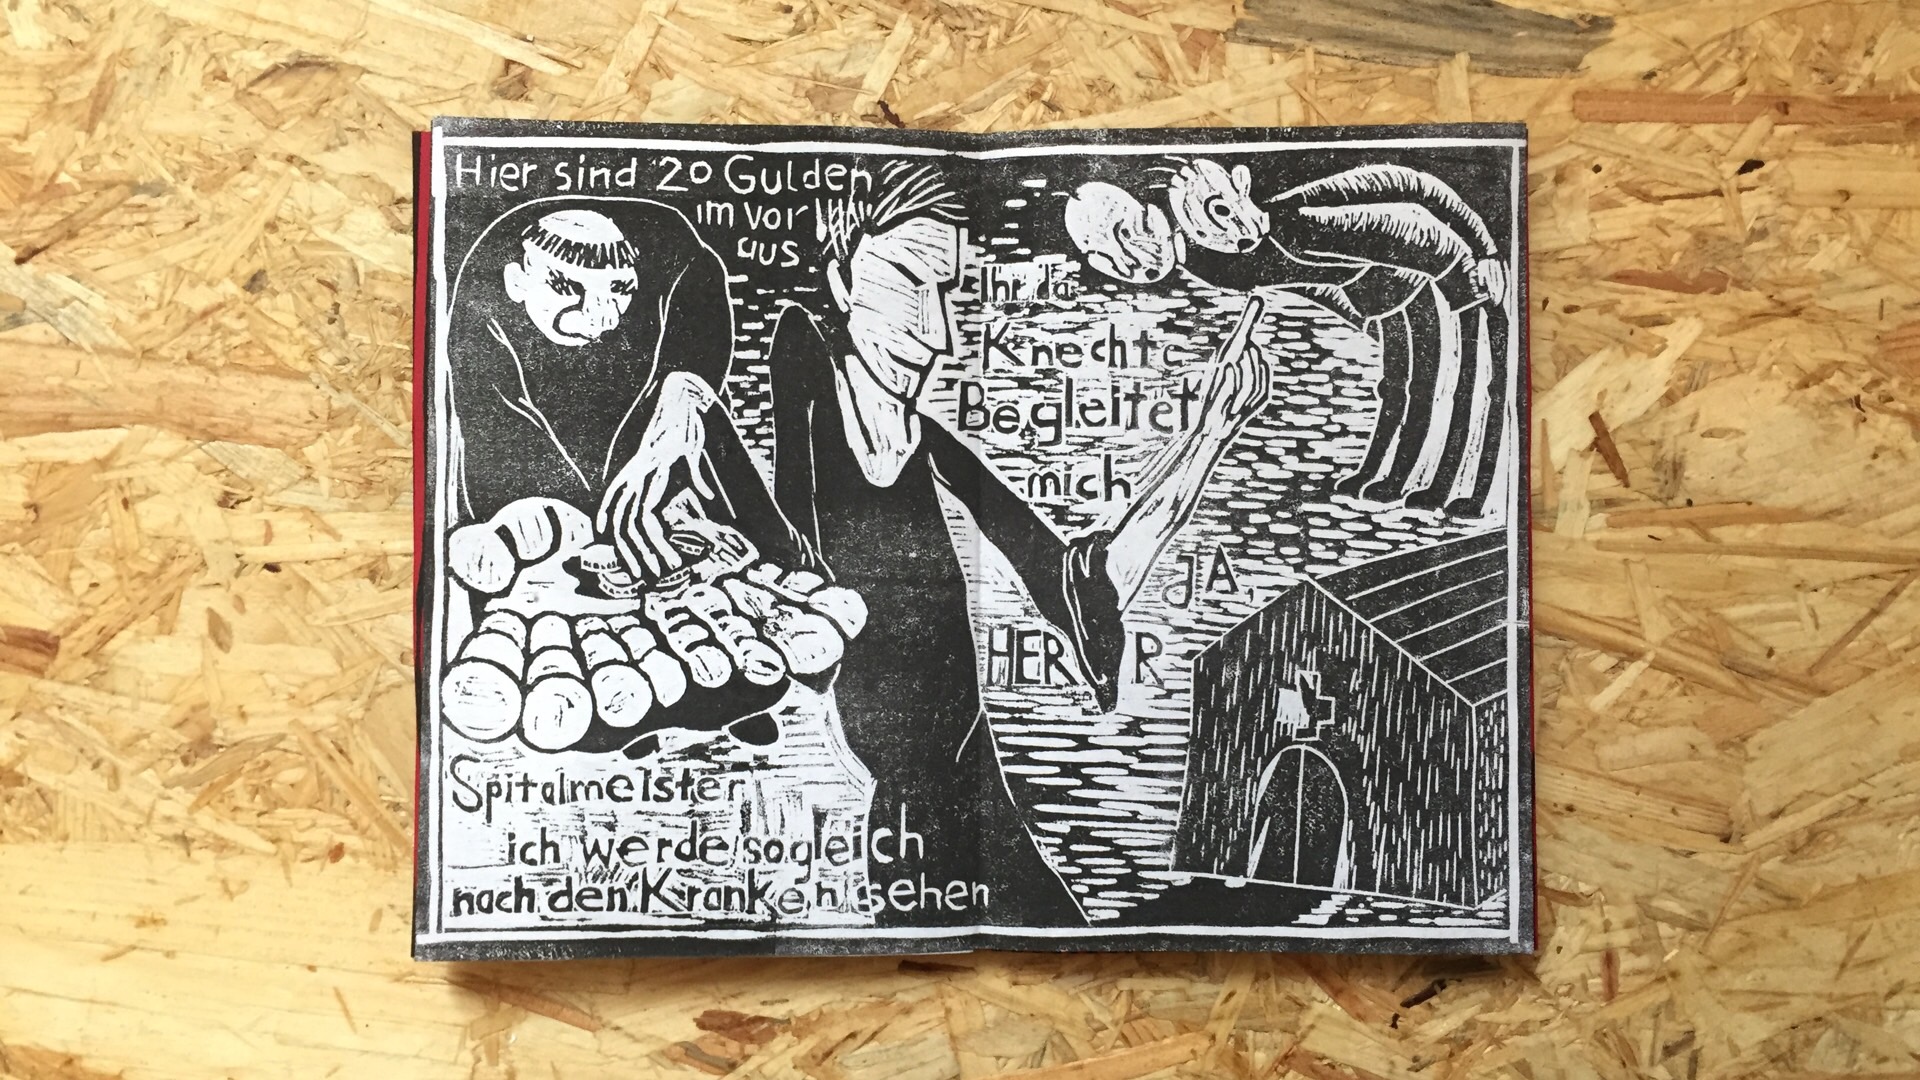 Hier sind 20 Gulden
im vor
aus.
Ihr da
Knechte
Begleitet
mich
JA
HERR
Spitalmeister
ich werde sogleich
nach den Kranken sehen